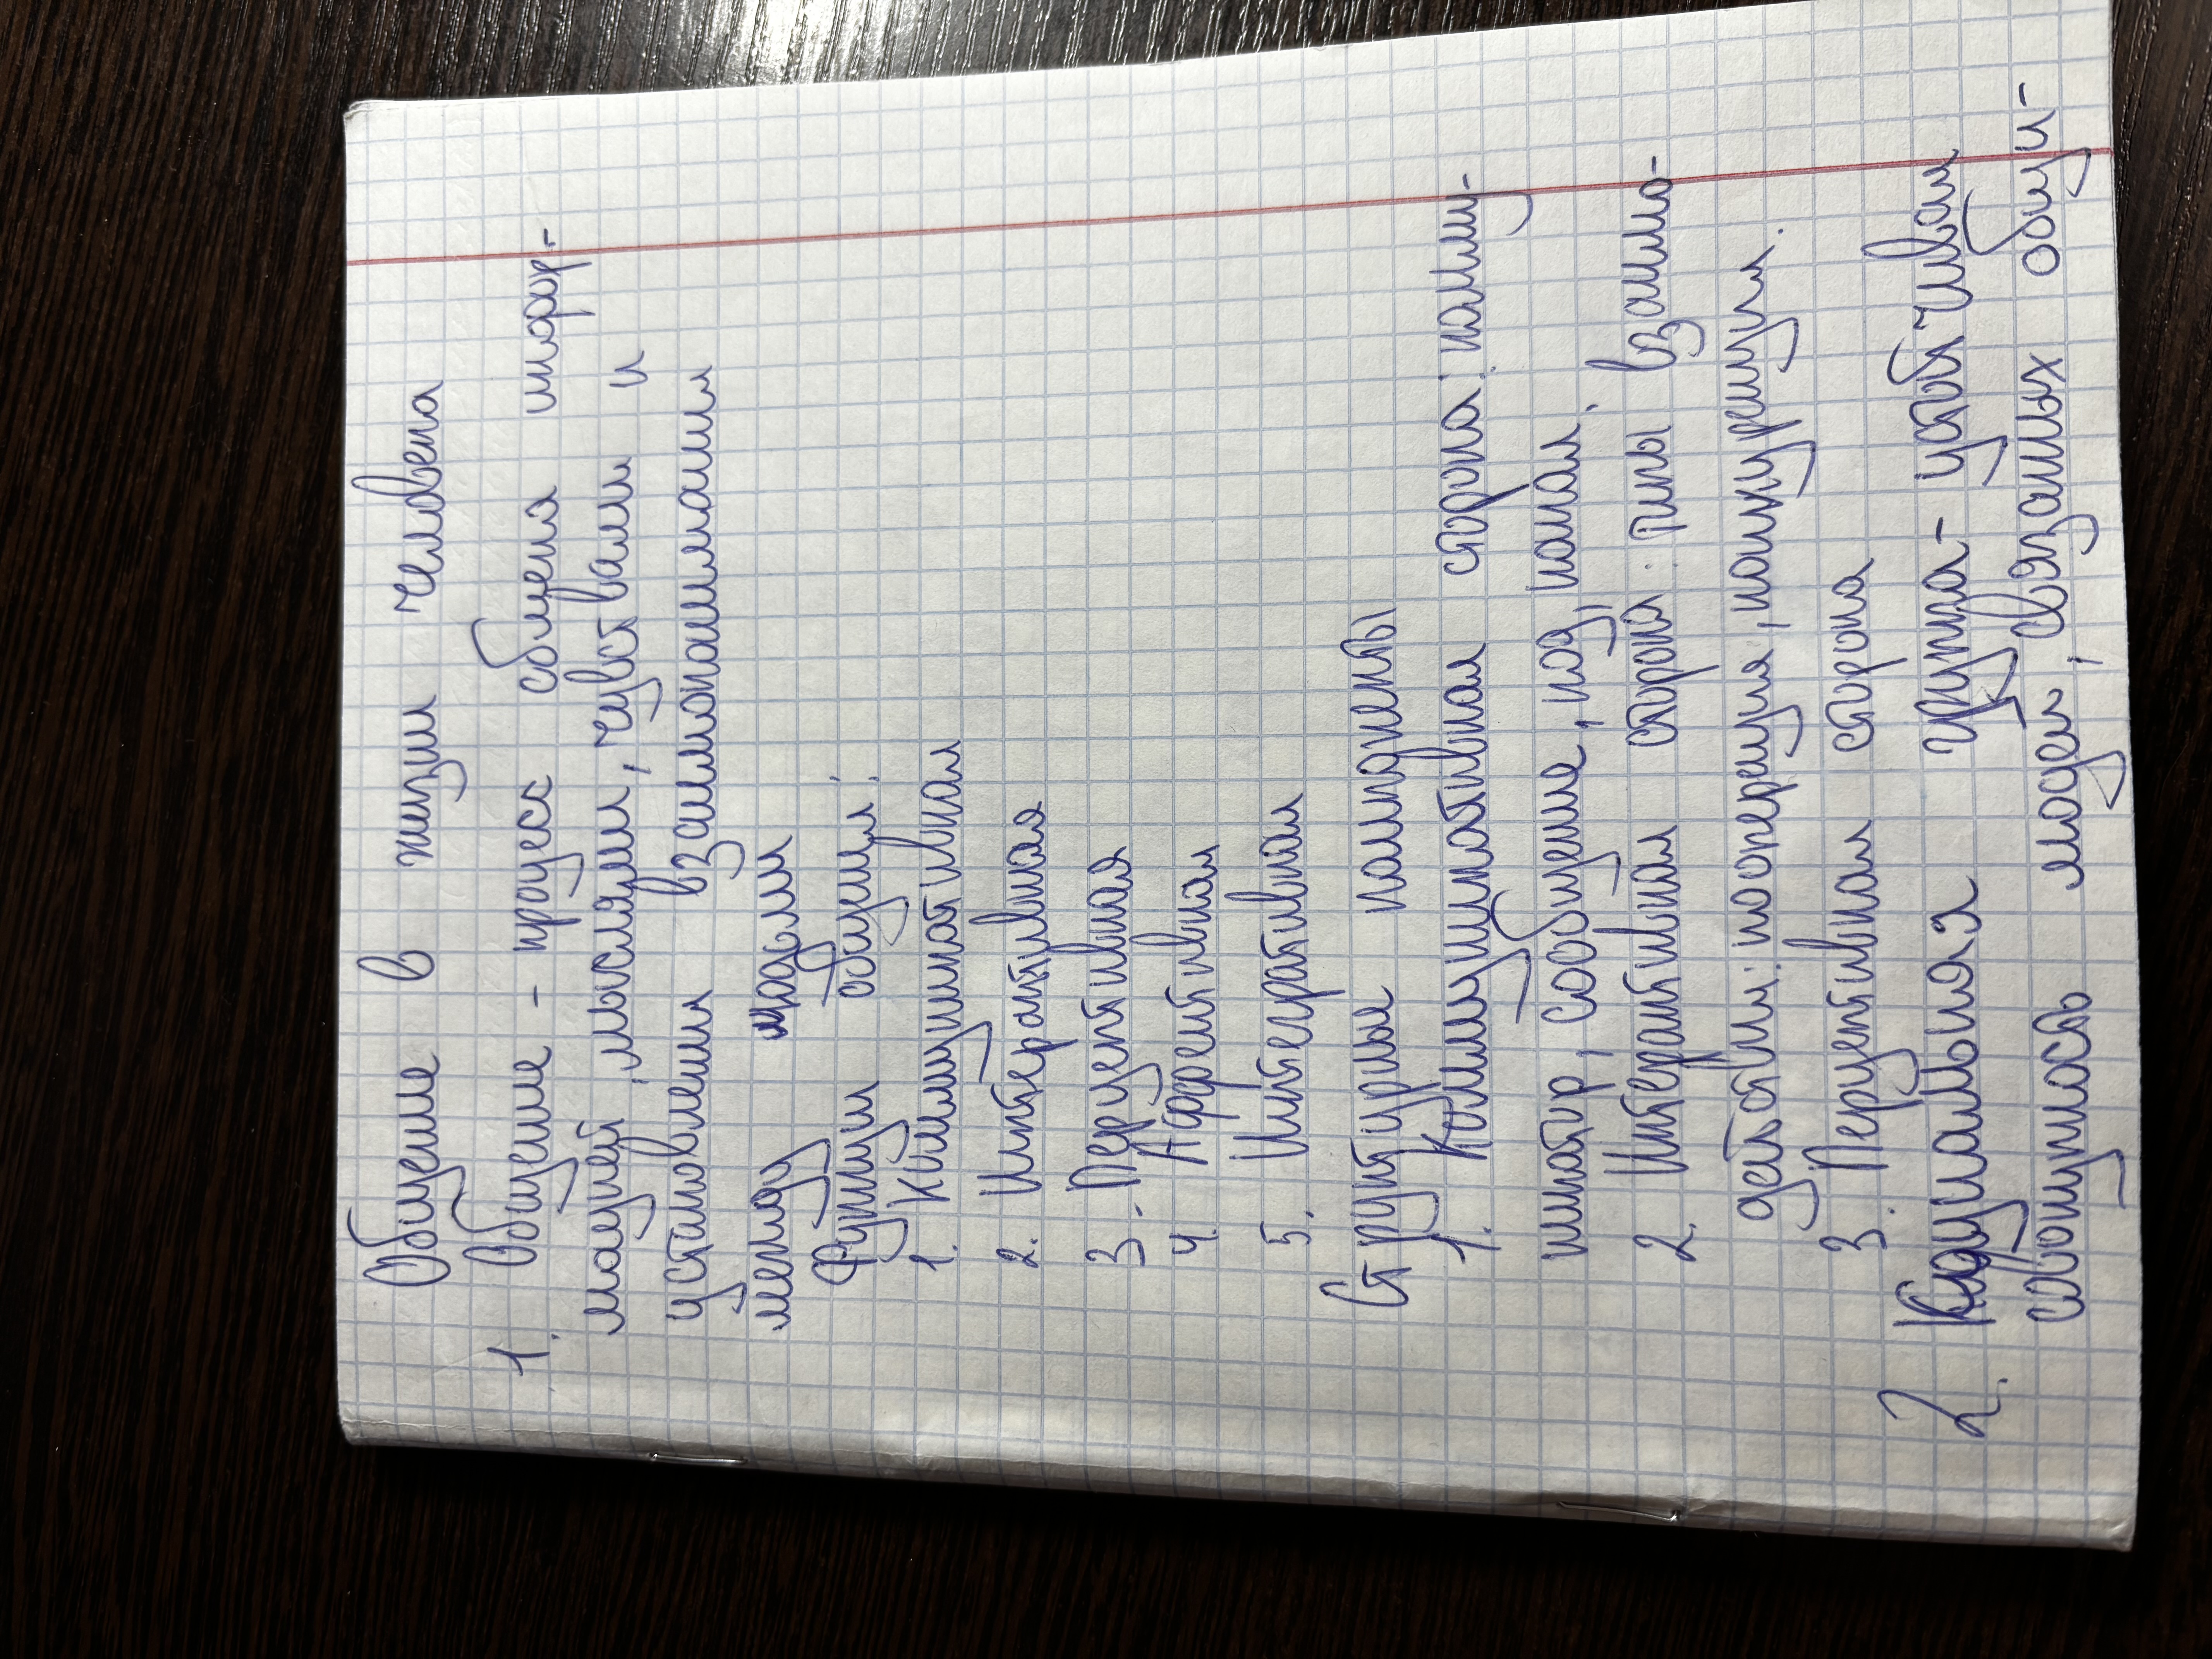 Общение в жизни человека
1. Общение - процесс обмена инфор-
мацией, мыслями, чувствами и
установления взаимопонимания
между людьми
Функции общения:
1. Коммуникативная
2. Интерактивная
3. Перцептивная
4. Аффективная
5. Интегративная
Структурные компоненты
1. Коммуникативная сторона: комму-
никатор, сообщение, код, канал.
2. Интерактивная сторона: типы взаимо-
действия: кооперация, конкуренция.
3. Перцептивная сторона
2. Социальная группа - устойчивая
совокупность людей, связанных общи-